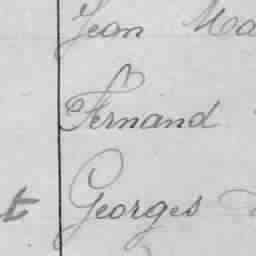 Jean
Fernand
t Georges